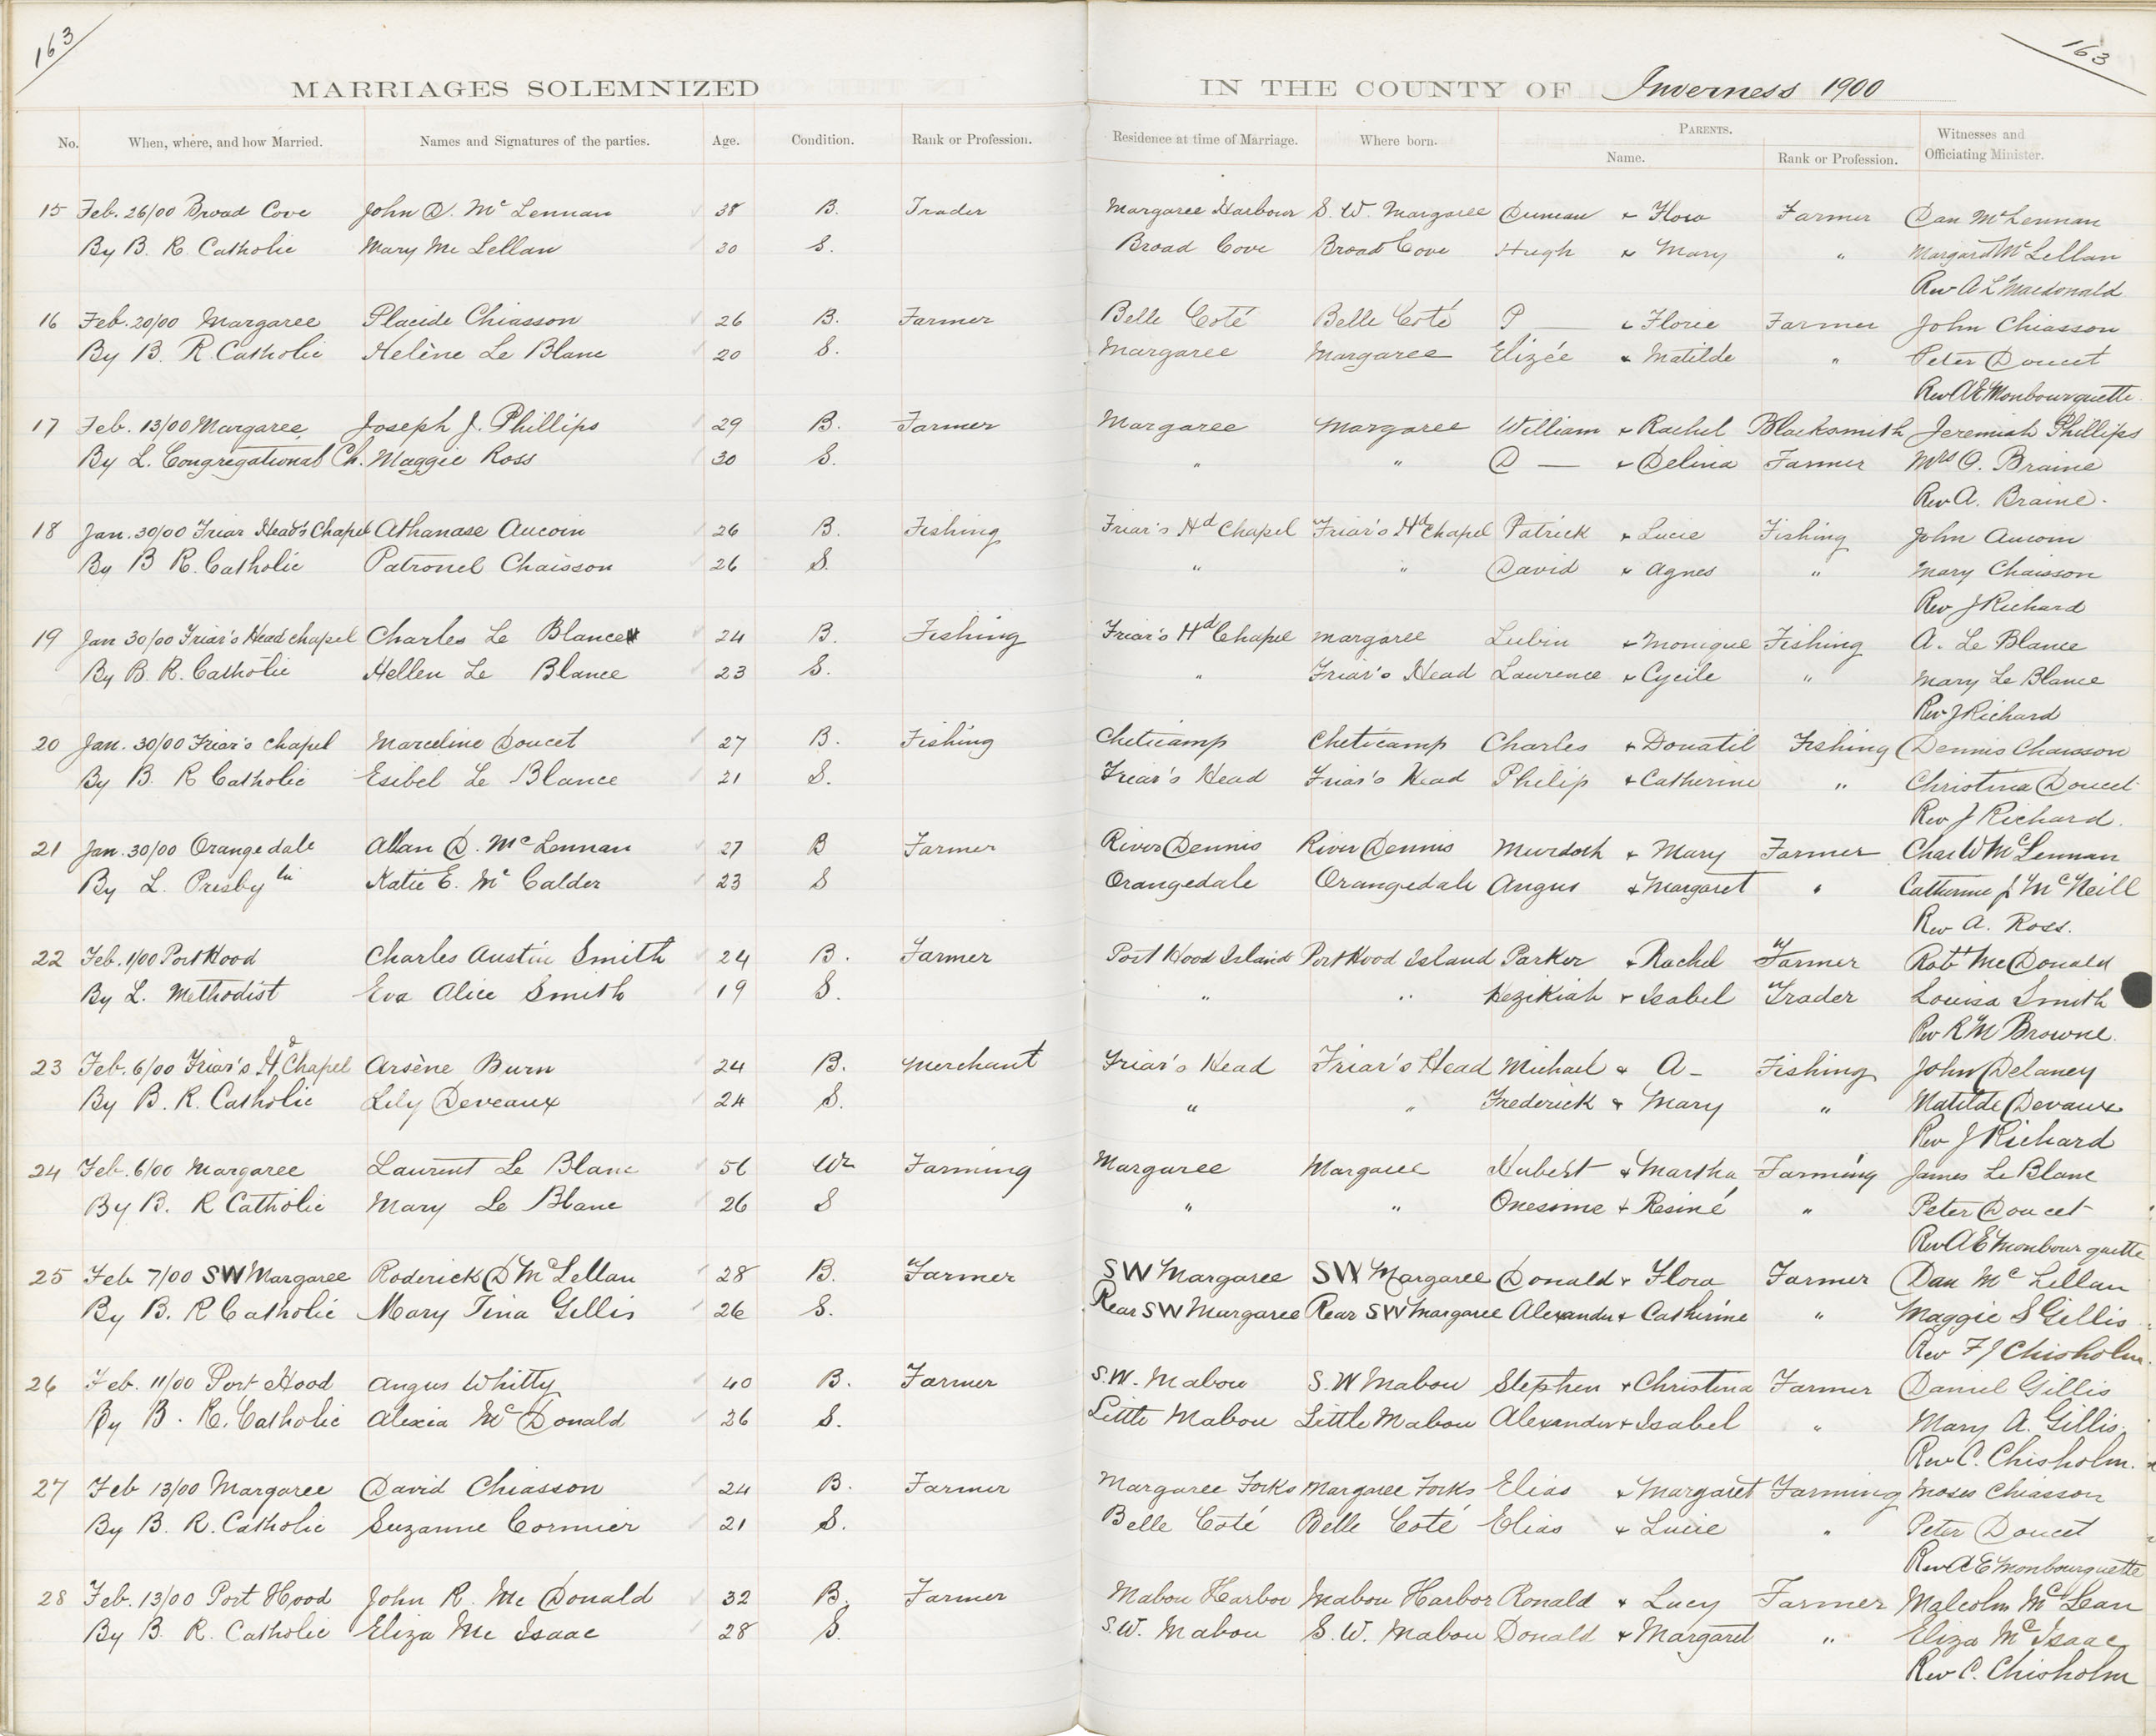 163
163
MARRIAGES SOLEMNIZED IN THE COUNTY OF Inverness 1900
No. When, where, and how Married. Names and Signatures of the parties. Age. Condition. Rank or Profession. Residence at time of Marriage. Where born. PARENTS. Name. Rank or Profession. Witnesses and Officiating Minister.
15 Feb. 26/00 Broad Cove John D. Mc Lennan 38 B. Trader Margaree Harbour S. W. Margaree Duncan & Flora Farmer Dan McLennan
By B. R. Catholic Mary Mc Lellan 30 S. Broad Cove Broad Cove Hugh & Mary " Margaret McLellan
Rev A L Macdonald
16 Feb. 20/00 Margaree Placide Chiasson 26 B. Farmer Belle Coté Belle Coté P — & Florie Farmer John Chiasson
By B. R. Catholic Helène Le Blanc 20 S. Margaree Margaree Elizée & Matilde " Peter Doucet
Rev A E Monbourquette
17 Feb. 13/00 Margaree Joseph J. Phillips 29 B. Farmer Margaree Margaree William & Rachel Blacksmith Jeremiah Phillips
By L. Congregational Ch. Maggie Ross 30 S. " " D — & Delina Farmer Mrs A. Braine
Rev A. Braine.
18 Jan. 30/00 Friar Head's Chapel Athanase Aucoin 26 B. Fishing Friar's Hd Chapel Friar's Hd Chapel Patrick & Lucie Fishing John Aucoin
By B R. Catholic Patronel Chaisson 26 S. " " David & Agnes " Mary Chaisson
Rev J Richard
19 Jan 30/00 Friar's Head chapel Charles Le Blance 24 B. Fishing Friar's Hd Chapel Margaree Lubin & Monique Fishing A. Le Blance
By B. R. Catholic Hellen Le Blance 23 S. " Friar's Head Laurence & Cycile " Mary Le Blance
Rev J Richard
20 Jan. 30/00 Friar's chapel Marceline Doucet 27 B. Fishing Cheticamp Cheticamp Charles & Donatil Fishing Dennis Chaisson
By B. R Catholic Esibel Le Blance 21 S. Friar's Head Friar's Head Philip & Catherine " Christina Doucet
Rev J Richard.
21 Jan. 30/00 Orangedale Allan D. Mc Lennan 27 B Farmer River Dennis River Dennis Murdoch & Mary Farmer Chas W McLennan
By L. Presby tn Katie E. Mc Calder 23 S Orangedale Orangedale Angus & Margaret " Catherine J McNeill
Rev A. Ross.
22 Feb. 1/00 Port Hood Charles Austin Smith 24 B. Farmer Port Hood Island Port Hood Island Parker & Rachel Farmer Robt McDonald
By L. Methodist Eva Alice Smith 19 S. " " Hezikiah & Isabel Trader Louisa Smith
Rev R M Browne.
23 Feb. 6/00 Friar's Hd Chapel Arsène Burn 24 B. Merchant Friar's Head Friar's Head Michael & A— Fishing John Delaney
By B. R. Catholic Lily Deveaux 24 S. " " Frederick & Mary " Matilde Devaux
Rev J Richard
24 Feb. 6/00 Margaree Laurent Le Blanc 56 Wr Farming Margaree Margaree Hubert & Martha Farming James Le Blanc
By B. R Catholic Mary Le Blanc 26 S " " Onesime & Resiné " Peter Doucet
Rev A E Monbourquette
25 Feb 7/00 SW Margaree Roderick D McLellan 28 B. Farmer SW Margaree SW Margaree Donald & Flora Farmer Dan Mc Lellan
By B. R Catholic Mary Tina Gillis 26 S. Rear SW Margaree Rear SW Margaree Alexander & Catherine " Maggie S Gillis
Rev F J Chisholm.
26 Feb. 11/00 Port Hood Angus Whitty 40 B. Farmer S.W. Mabou S.W Mabou Stephen & Christina Farmer Daniel Gillis
By B. R. Catholic Alexia Mc Donald 36 S. Little Mabou Little Mabou Alexander & Isabel " Mary A. Gillis.
Rev C. Chisholm.
27 Feb 13/00 Margaree David Chiasson 24 B. Farmer Margaree Forks Margaree Forks Elias & Margaret Farming Moses Chiasson
By B. R. Catholic Suzanne Cormier 21 S. Belle Coté Belle Coté Elias & Lucie " Peter Doucet
Rev A E Monbourquette
28 Feb. 13/00 Port Hood John R. Mc Donald 32 B. Farmer Mabou Harbor Mabou Harbor Ronald & Lucy Farmer Malcolm McLean
By B. R. Catholic Eliza Mc Isaac 28 S. S.W. Mabou S.W. Mabou Donald & Margaret " Eliza McIsaac
Rev C. Chisholm